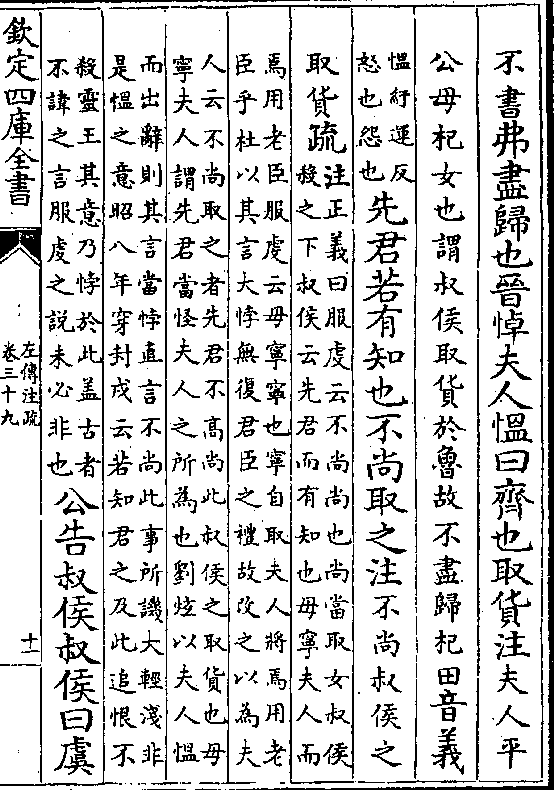 不書弗盡歸也晉悼夫人慍曰齊也取貨注夫人平
公母杞女也謂叔侯取貨於魯故不盡歸杞田音義
慍紆運反
怒也怨也
先君若有知也不尚取之注不尚叔侯之
取貨疏
注正義曰服虔云不尚尚也尚當取女叔侯
殺之下叔侯云先君而有知也毋寧夫人而
焉用老臣服虔云毋寧寧也寧自取夫人將焉用老
臣乎杜以其言大悖無復君臣之禮故改之以為夫
人云不尚取之者先君不高尚此叔侯之取貨也毋
寧夫人謂先君當怪夫人之所為也劉炫以夫人慍
而出辭則其言當悖直言不尚此事所譏大輕淺非
是慍之意昭八年穿封戌云若知君之及此追恨不
殺靈王其意乃悖於此盖古者
不諱之言服虔之說未必非也
公告叔侯叔侯曰虞
欽定四庫全書
左傳注疏
卷三十九
十一